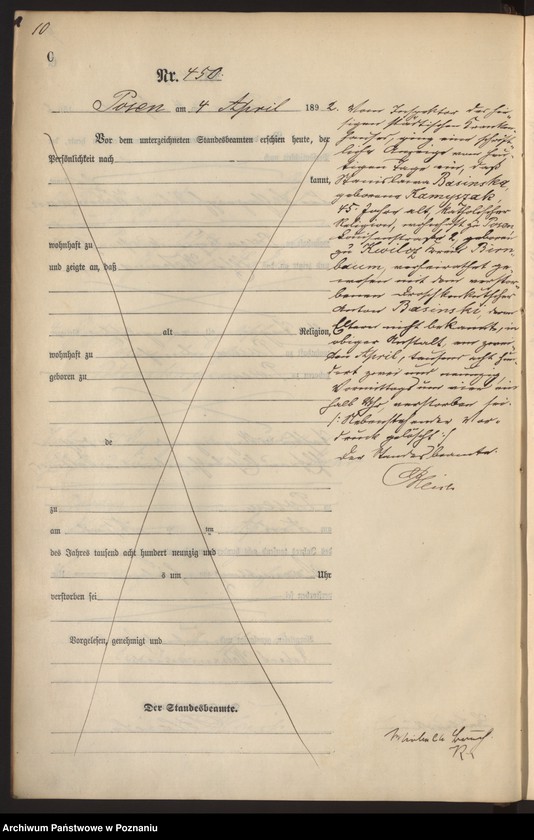 10
C
Nr. 450.
Posen am 4 April 1892.
Vor dem unterzeichneten Standesbeamten erschien heute, der
Persönlichkeit nach
kannt,
wohnhaft zu
und zeigte an, daß
alt Religion,
wohnhaft zu
geboren zu
de
zu
am um
des Jahres tausend acht hundert neunzig und
s um Uhr
verstorben sei
Vorgelesen, genehmigt und
Der Standesbeamte.
Vom Inspektor des hie-
sigen städtischen Kranken-
hauses ging eine schrift-
liche Anzeige vom heu-
tigen Tage ein, daß
Stanislawa Basinska,
geborene Kamyszak,
45 Jahre alt, katholischer
Religion, wohnhaft zu Posen,
2, geboren
zu Kwilcz Kreis Birn-
baum, verheirathet ge-
wesen mit dem verstor-
benen Droschkenkutscher
Anton Basinski, deren
Eltern nicht bekannt, in
obiger Anstalt, am zwei-
ten April, tausend acht hun-
dert zwei und neunzig,
Vormittags um ein
halb Uhr, verstorben sei.
/: Nebenstehender Vor-
druck gelöscht :/
Der Standesbeamte.
Archiwum Państwowe w Poznaniu